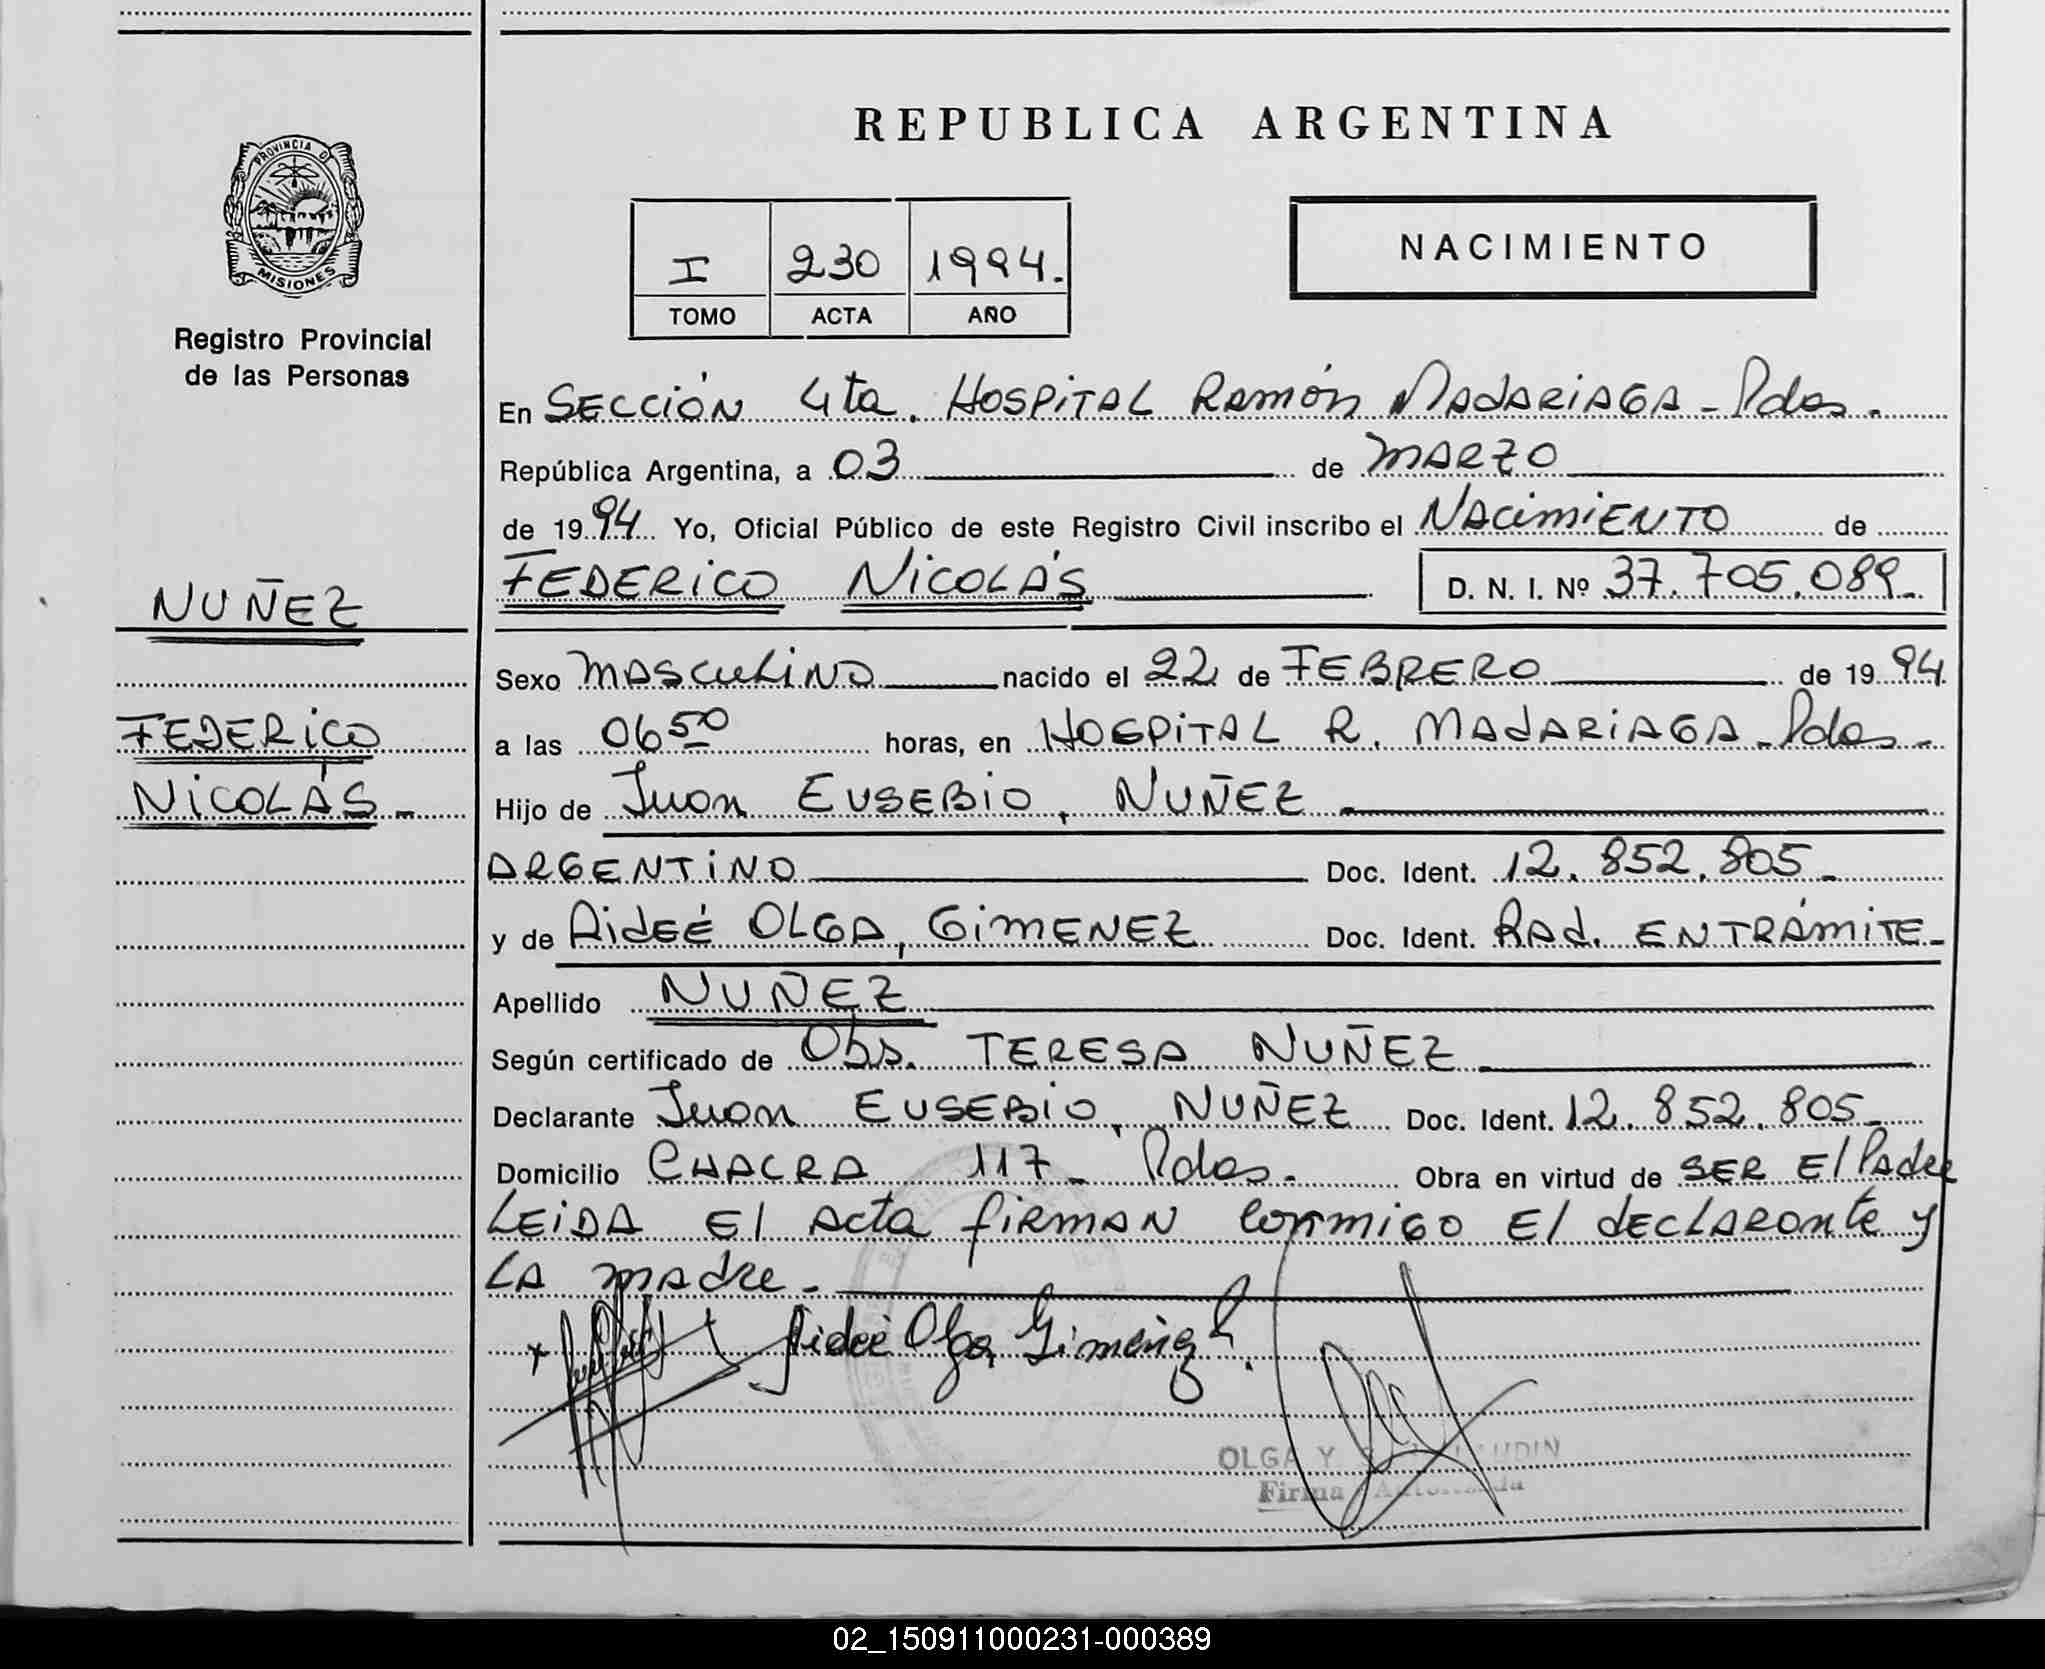 REPUBLICA ARGENTINA
PROVINCIA D
MISIONES
Registro Provincial
de las Personas
I 230 1994.
TOMO ACTA AÑO
NACIMIENTO
En SECCIÓN 4ta. HOSPITAL RAMÓN MADARIAGA - Pdas.
República Argentina, a 03 de MARZO
de 1994 Yo, Oficial Público de este Registro Civil inscribo el NACIMIENTO de
FEDERICO NICOLÁS D. N. I. Nº 37.705.089
NUÑEZ
FEDERICO
NICOLÁS -
Sexo MASCULINO nacido el 22 de FEBRERO de 1994
a las 06 50 horas, en HOSPITAL R. MADARIAGA - Pdas -
Hijo de Juan EUSEBIO, NUÑEZ
ARGENTINO Doc. Ident. 12.852.805 -
y de AIDEÉ OLGA, GIMENEZ Doc. Ident. RAd. EN TRÁMITE -
Apellido NUÑEZ
Según certificado de Obs. TERESA NUÑEZ
Declarante Juan EUSEBIO, NUÑEZ Doc. Ident. 12.852.805 -
Domicilio CHACRA 117 - Pdas. Obra en virtud de SER El Padre
LEIDA El Acta firman conmigo El declarante y
LA madre -
Aideé Olga Gimenez.
OLGA Y
Firma Autorizada
02_150911000231-000389